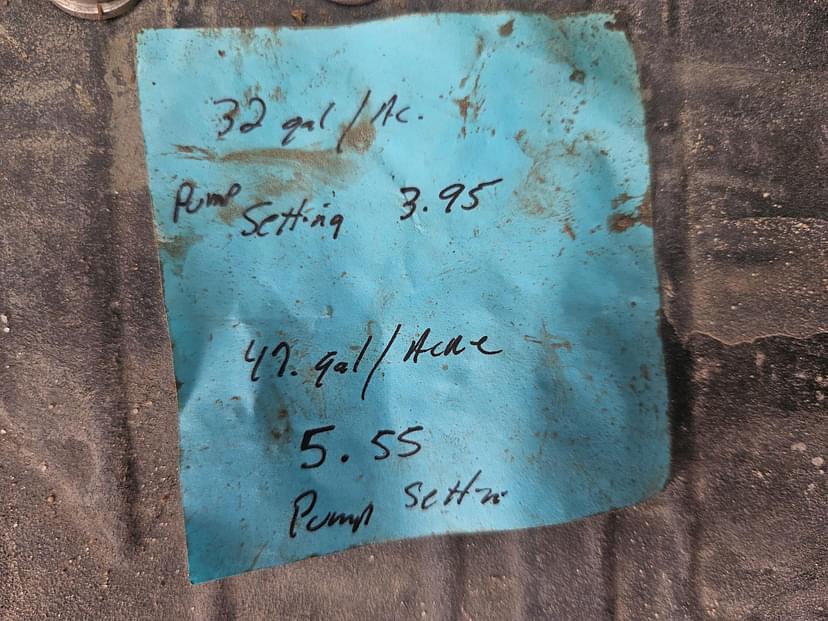 32 gal/Ac.
Pump Setting 3.95
47. gal/Acre
5.55
Pump Settin